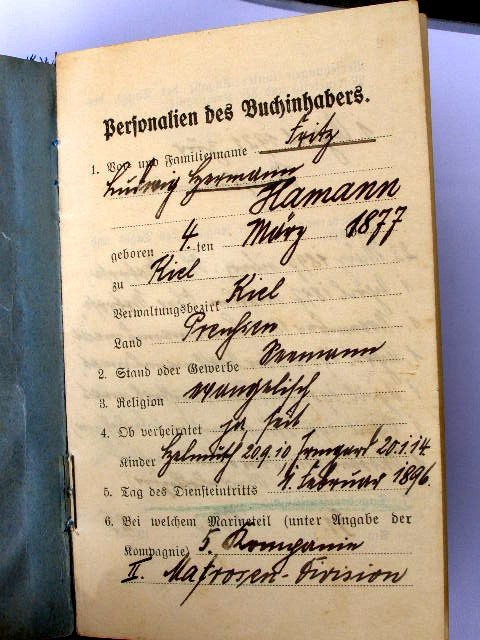 Personalien des Buchinhabers.
1. Vor- und Familienname Fritz
Ludwig Hermann
Hamann
geboren 4. ten März 1877
zu Kiel
Verwaltungsbezirk Kiel
Land Preußen
2. Stand oder Gewerbe Seemann
3. Religion evangelisch
4. Ob verheiratet ja, seit
Kinder Helmuth 20.9.10 Irmgard 20.1.14
5. Tag des Diensteintritts 4. Februar 1896
6. Bei welchem Marineteil (unter Angabe der
Kompagnie) 5. Kompanie
II. Matrosen-Division